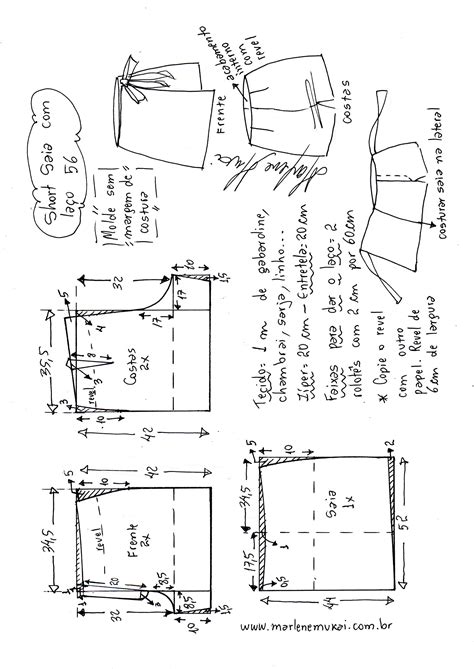 Short Saia com
laço 56
Molde sem
margem de
costura
Frente
acabamento
interno
com
revel
costas
costurar saia na lateral
Tecido= 1 m de gabardine,
chambrai, sarja, linho...
Zíper= 20 cm - Entretela= 20 cm
Faixas para dar o laço = 2
rolotês com 2 cm por 60cm
* Copie o revel
com outro
papel. Revel de
6cm de largura
32
10
1,5
17
17
5
4
35,5
8
3
Costas
2x
revel
3
10
42
42
5
10
34,5
revel
Frente
2x
20
3
8,5
8,5
1,5
32
10
5
10
2
34,5
Saia
1x
52
17,5
1
0,5
44
www.marlenemukai.com.br